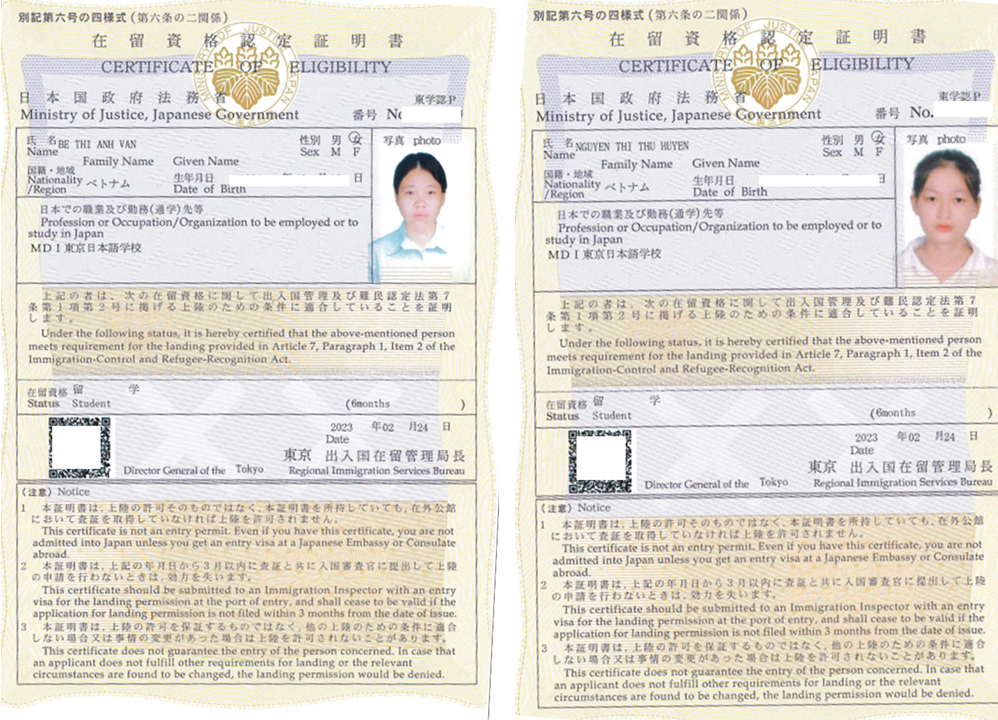 別記第六号の四様式(第六条の二関係)
在留資格認定証明書
CERTIFICATE OF ELIGIBILITY
MINISTRY OF JUSTICE JAPAN
日本国政府法務省
東学認P
Ministry of Justice, Japanese Government
番号 No
氏名 BE THI ANH VAN
Name
性別 男 女
Sex M F
写真 photo
Family Name Given Name
国籍・地域
Nationality ベトナム
/Region
生年月日 日
Date of Birth
日本での職業及び勤務(通学)先等
Profession or Occupation/Organization to be employed or to
study in Japan
MDI東京日本語学校
上記の者は、次の在留資格に関して出入国管理及び難民認定法第7
条第1項第2号に掲げる上陸のための条件に適合していることを証明
します。
Under the following status, it is hereby certified that the above-mentioned person
meets requirement for the landing provided in Article 7, Paragraph 1, Item 2 of the
Immigration-Control and Refugee-Recognition Act.
在留資格 留 学
Status Student (6months )
2023 年02 月24 日
Date
東京 出入国在留管理局長
Director General of the Tokyo Regional Immigration Services Bureau
(注意) Notice
1 本証明書は、上陸の許可そのものではなく、本証明書を所持していても、在外公館
において査証を取得していなければ上陸を許可されません。
This certificate is not an entry permit. Even if you have this certificate, you are not
admitted into Japan unless you get an entry visa at a Japanese Embassy or Consulate
abroad.
2 本証明書は、上記の年月日から3月以内に査証と共に入国審査官に提出して上陸
の申請を行わないときは、効力を失います。
This certificate should be submitted to an Immigration Inspector with an entry
visa for the landing permission at the port of entry, and shall cease to be valid if the
application for landing permission is not filed within 3 months from the date of issue.
3 本証明書は、上陸の許可を保証するものではなく、他の上陸のための条件に適合
しない場合又は事情の変更があった場合は上陸を許可されないことがあります。
This certificate does not guarantee the entry of the person concerned. In case that
an applicant does not fulfill other requirements for landing or the relevant
circumstances are found to be changed, the landing permission would be denied.
別記第六号の四様式(第六条の二関係)
在留資格認定証明書
CERTIFICATE OF ELIGIBILITY
MINISTRY OF JUSTICE JAPAN
日本国政府法務省
東学認P
Ministry of Justice, Japanese Government
番号 No.
氏名 NGUYEN THI THU HUYEN
Name
性別 男 女
Sex M F
写真 photo
Family Name Given Name
国籍・地域
Nationality ベトナム
/Region
生年月日 日
Date of Birth
日本での職業及び勤務(通学)先等
Profession or Occupation/Organization to be employed or to
study in Japan
MDI東京日本語学校
上記の者は、次の在留資格に関して出入国管理及び難民認定法第7
条第1項第2号に掲げる上陸のための条件に適合していることを証明
します。
Under the following status, it is hereby certified that the above-mentioned person
meets requirement for the landing provided in Article 7, Paragraph 1, Item 2 of the
Immigration-Control and Refugee-Recognition Act.
在留資格 留 学
Status Student (6months )
2023 年02 月24 日
Date
東京 出入国在留管理局長
Director General of the Tokyo Regional Immigration Services Bureau
(注意) Notice
1 本証明書は、上陸の許可そのものではなく、本証明書を所持していても、在外公館
において査証を取得していなければ上陸を許可されません。
This certificate is not an entry permit. Even if you have this certificate, you are not
admitted into Japan unless you get an entry visa at a Japanese Embassy or Consulate
abroad.
2 本証明書は、上記の年月日から3月以内に査証と共に入国審査官に提出して上陸
の申請を行わないときは、効力を失います。
This certificate should be submitted to an Immigration Inspector with an entry
visa for the landing permission at the port of entry, and shall cease to be valid if the
application for landing permission is not filed within 3 months from the date of issue.
3 本証明書は、上陸の許可を保証するものではなく、他の上陸のための条件に適合
しない場合又は事情の変更があった場合は上陸を許可されないことがあります。
This certificate does not guarantee the entry of the person concerned. In case that
an applicant does not fulfill other requirements for landing or the relevant
circumstances are found to be changed, the landing permission would be denied.